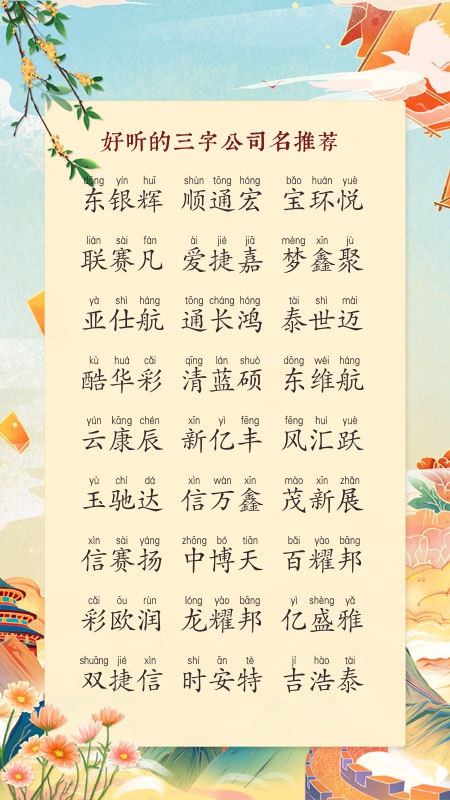 好听的三字公司名推荐
dōng yín huī shùn tōng hóng bǎo huán yuè
东银辉 顺通宏 宝环悦
lián sài fán ài jié jiā mèng xīn jù
联赛凡 爱捷嘉 梦鑫聚
yà shì háng tōng cháng hóng tài shì mài
亚仕航 通长鸿 泰世迈
kù huá cǎi qīng lán shuò dōng wéi háng
酷华彩 清蓝硕 东维航
yún kāng chén xīn yì fēng fēng huì yuè
云康辰 新亿丰 风汇跃
yù chí dá xìn wàn xīn mào xīn zhǎn
玉驰达 信万鑫 茂新展
xìn sài yáng zhōng bó tiān bǎi yào bāng
信赛扬 中博天 百耀邦
cǎi ōu rùn lóng yào bāng yì shèng yǎ
彩欧润 龙耀邦 亿盛雅
shuāng jié xìn shí ān tè jí hào tài
双捷信 时安特 吉浩泰